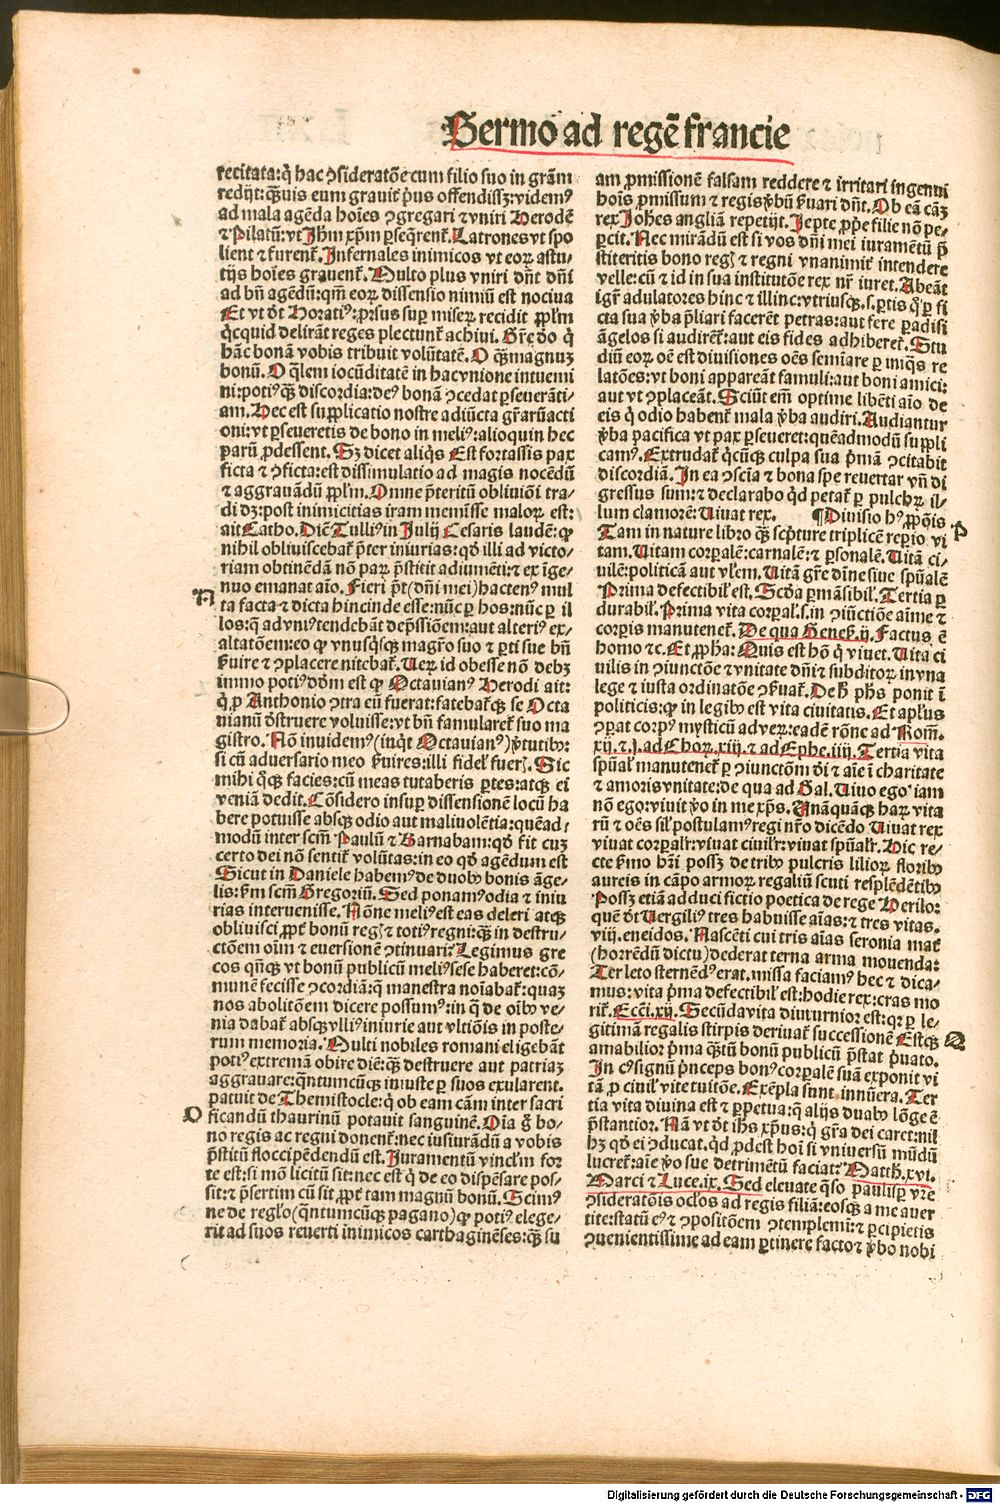 Sermo ad regē francie
recitata: q̇ hac ↄsideratōe cum filio suo in grām
redijt: q̄ȝuis eum grauit̄ p̓us offendissȝ: videmꝰ
ad mala agēda hoīes ↄgregari ⁊ vniri Herodē
⁊ Pilatū: vt Jhm̄ xp̄m ꝑseq̄rent̄. Latrones vt spo
lient ⁊ furent̄. Infernales inimicos vt eoꝝ astu⸗
tijs hoīes grauent̄. Multo plus vniri dn̄t dn̄i
ad bn̄ agēdū: qm̄ eoꝝ dissensio nimiū est nociua
Et vt dt̄ Horatiꝰ: ꝓrsus suꝑ miseꝝ recidit ꝓpl̄m
Qicquid delirāt reges plectunt̄ achiui. Gr̄e do q̇
hāc bonā vobis tribuit volūtatē. O q̄ȝ magnuȝ
bonū. O q̄lem iocūditatē in hac vnione intuemi
ni: potiꝰ q̄ȝ discordia: deꝰ bonā ↄcedat ꝑseuerāti⸗
am. Hec est supplicatio nostre adiūcta gr̄aꝝ acti
oni: vt ꝑseueretis de bono in meliꝰ: alioquin hec
parū ꝓdessent. Sȝ dicet aliq̇s Est fortassis pax
ficta ⁊ ↄficta: est dissimulatio ad magis nocēdū
⁊ aggrauādū ꝓpl̄m. Omne p̄teritū obliuiōi tra⸗
di dȝ: post inimicitias iram meminisse maloꝝ est:
ait Catho. Diē Tulliꝰ in Julij Cesaris laudē: ꝙ
nihil obliuiscebat̄ p̄ter iniurias: qd̓ illi ad victo⸗
riam obtinēdā nō paꝝ p̄stitit adiumēti: ⁊ ex īge⸗
N nuo emanat aīo. Fieri p̄t (dn̄i mei) hactenꝰ mul
ta facta ⁊ dicta hincinde esse: nūc ꝑ hos: nūc ꝑ il
los: q̇ ad vniꝰ tendebāt dep̄ssiōem: aut alteriꝰ ex⸗
altatōem: eo ꝙ vnusq̇sqȝ magr̄o suo ⁊ ꝑti sue bn̄
ẜuire ⁊ ↄplacere nitebat̄. Ueꝝ id obesse nō debȝ
immo potiꝰ dd̄m est ꝙ Octauianꝰ Herodi ait:
q̇ ꝓ Anthonio ↄtra eū fuerat: fatebat̄qȝ se Octa
uianū dstruere voluisse: vt bn̄ famularet̄ suo ma
gistro. Nō inuidemꝰ (inq̇t Octauianꝰ) v̓tutibꝰ:
si cū aduersario meo ẜuires: illi fidel̓ fueꝭ. Sic
mihi q̇qȝ facies: cū meas tutaberis ꝑtes: atqȝ ei
veniā dedit. Cōsidero insuꝑ dissensionē locū ha
bere potuisse absqȝ odio aut maliuolētia: quēad⸗
modū inter scm̄ Paulū ⁊ Barnabam: qd̓ fit cuȝ
certo dei nō sentit̄ volūtas: in eo qd̓ agēdum est
Sicut in Daniele habemꝰ de duobꝰ bonis āge⸗
lis: ẜm scm̄ Gregoriū. Sed ponamꝰ odia ⁊ iniu
rias interuenisse. Nōne meliꝰ est eas deleri atqȝ
obliuisci ꝓpt̄ bonū regꝭ ⁊ totiꝰ regni: q̄ȝ in destru⸗
ctōem oīm ⁊ euersionē ↄtinuari: Legimus gre
cos qn̄qȝ vt bonū publicū meliꝰ sese haberet: cō⸗
munē fecisse ↄcordiā: q̄ manestra noīabat̄: quaȝ
nos abolitōem dicere possumꝰ: in q̄ de oībꝰ ve⸗
nia dabat̄ absqȝ vlliꝰ iniurie aut vltiōis in poste⸗
rum memoria. Multi nobiles romani eligebāt
potiꝰ extremā obire diē: q̄ȝ destruere aut patriaȝ
aggrauare: q̄ntumcūqȝ iniuste ꝑ suos exularent.
patuit de Themistocle: q̇ ob eam cām inter sacri
O ficandū thaurinū potauit sanguinē. Oīa g̊ bo⸗
no regis ac regni donent̄: nec iusiurādū a vobis
p̄stitū floccipēdendū est. Juramentū vincl̄m for
te est: si mō licitū sit: nec est q̇ de eo dispēsare pos⸗
sit: ⁊ p̄sertim cū sit ꝓpt̄ tam magnū bonū. Scimꝰ
ne de regl̓o (q̄ntumcūqȝ pagano) ꝙ potiꝰ elege⸗
rit ad suos reuerti inimicos carthaginēses: q̄ȝ su
am ꝓmissionē falsam reddere ⁊ irritari ingenui
hoīs ꝓmissum ⁊ regis v̓bū ẜuari dn̄t. Ob eā cāȝ
rex Joh̄es angliā repetijt. Jepte ꝓpe filie nō pe⸗
ꝑcit. Nec mirādū est si vos dn̄i mei iuramētū p̄
stiteritis bono regꝭ ⁊ regni vnanimit̄ intendere
velle: cū ⁊ id in sua institutōe rex nr̄ iuret. Abeāt
igr̄ adulatores hinc ⁊ illinc: vtriusqȝ .s. ꝑtis q̇ ꝑ fi
cta sua v̓ba p̄liari facerēt petras: aut fere ꝑadisi
āgelos si audirēt̄: aut eis fides adhiberet̄. Stu
diū eoꝝ oē est diuisiones oēs semīare ꝑ miq̄s re
latōes: vt boni appareāt famuli: aut boni amici:
aut vt ↄplaceāt. Sciūt em̄ optime libēti aīo de
eis q̇ odio habent̄ mala v̓ba audiri. Audiantur
v̓ba pacifica vt pax ꝑseueret: quēadmodū suppli
camꝰ. Extrudat̄ q̇cūqȝ culpa sua p̓mā ↄcitabit
discordiā. In ea ↄscīa ⁊ bona spe reuertar vn̄ di
gressus sum: ⁊ declarabo q̇d petat̄ ꝑ pulchꝝ il⸗
lum clamorē: Uiuat rex. ¶ Diuisio hꝰ ꝓpōis.
Tam in nature libro q̄ȝ sc̓pture triplicē reꝑio vi P
tam. Uitam corꝑalē: carnalē: ⁊ ꝑsonalē. Uitā ci⸗
uilē: politicā aut vl̄em. Uitā gr̄e dīne siue spūalē
Prima defectibil̓ est. Scd̓a ꝑmāsibil̓. Tertia ꝑ
durabil̓. Prima vita corꝑal̓ .s. in ↄiūctiōe aīme ⁊
corꝑis manutenet̄. De qua Genes̓. ij. Factus ē
homo ⁊c. Et ꝓpha: Quis est hō q̇ viuet. Uita ci
uilis in ↄiunctōe ⁊ vnitate dn̄i ⁊ subditoꝝ in vna
lege ⁊ iusta ordinatōe ↄẜuat̄. De h̓ ph̄s ponit ī
politicis: ꝙ in legibꝰ est vita ciuitatis. Et apl̄us
ↄꝑat corpꝰ mysticū ad veꝝ: eadē rōne ad Rom̄.
xij. ⁊ .j. ad Choꝝ. xiij. ⁊ ad Ephe. iiij. Tertia vita
spūal̓ manutenet̄ ꝑ ↄiunctōm dī ⁊ aīe ī charitate
⁊ amoris vnitate: de qua ad Gal. Uiuo ego iam
nō ego: viuit v̓o in me xp̄s. Unāquāqȝ haꝝ vita
rū ⁊ oēs sil̓ postulamꝰ regi nr̄o dicēdo Uiuat rex
viuat corꝑalr̄: viuat ciuilr̄: viuat spūalr̄. Hic re⸗
cte ẜmo h̄ri possȝ de tribꝰ pulcris lilioꝝ floribꝰ
aureis in cāpo armoꝝ regaliū scuti resplēdētibꝰ
Possȝ etiā adduci fictio poetica de rege Herilo:
quē dt̄ Uergiliꝰ tres habuisse aīas: ⁊ tres vitas.
viij. eneidos. Nascēti cui tris aīas feronia mat̄
(horrēdū dictu) dederat terna arma mouenda:
Ter leto sternēdꝰ erat. missa faciamꝰ hec ⁊ dica⸗
mus: vita p̓ma defectibil̓ est: hodie rex: cras mo
rit̄. Ecc̄i. xij. Secūda vita diuturnior est: qꝛ ꝑ le⸗
gitimā regalis stirpis deriuat̄ successionē Estqȝ Q
amabilior p̓ma q̄tū bonū publicū p̄stat p̓uato.
In cꝰ signū p̓nceps bonꝰ corꝑalē suā exponit vi
tā ꝓ ciuil̓ vite tuitōe. Exēpla sunt innūera. Ter
tia vita diuina est ⁊ ꝑpetua: q̄ alijs duabꝰ lōge ē
p̄stantior. Nā vt dt̄ ih̄s xp̄us: q̇ gr̄a dei caret: nil
hȝ qd̓ ei ↄducat. q̇d ꝓdest hoī si vniuersū mūdū
lucret̄: aīe v̓o sue detrimētū faciat: Matth̄. xvi.
Marci ⁊ Luce. ix. Sed eleuate q̄so paulisꝑ vr̄e
ↄsideratōis ocl̓os ad regis filiā: eosqȝ a me auer
tite: statū eꝰ ⁊ ↄpositōem ↄtemplemi: ⁊ ꝑcipietis
ↄuenientissime ad eam ꝑtinere facto ⁊ v̓bo nobi
Digitalisierung gefördert durch die Deutsche Forschungsgemeinschaft - DFG